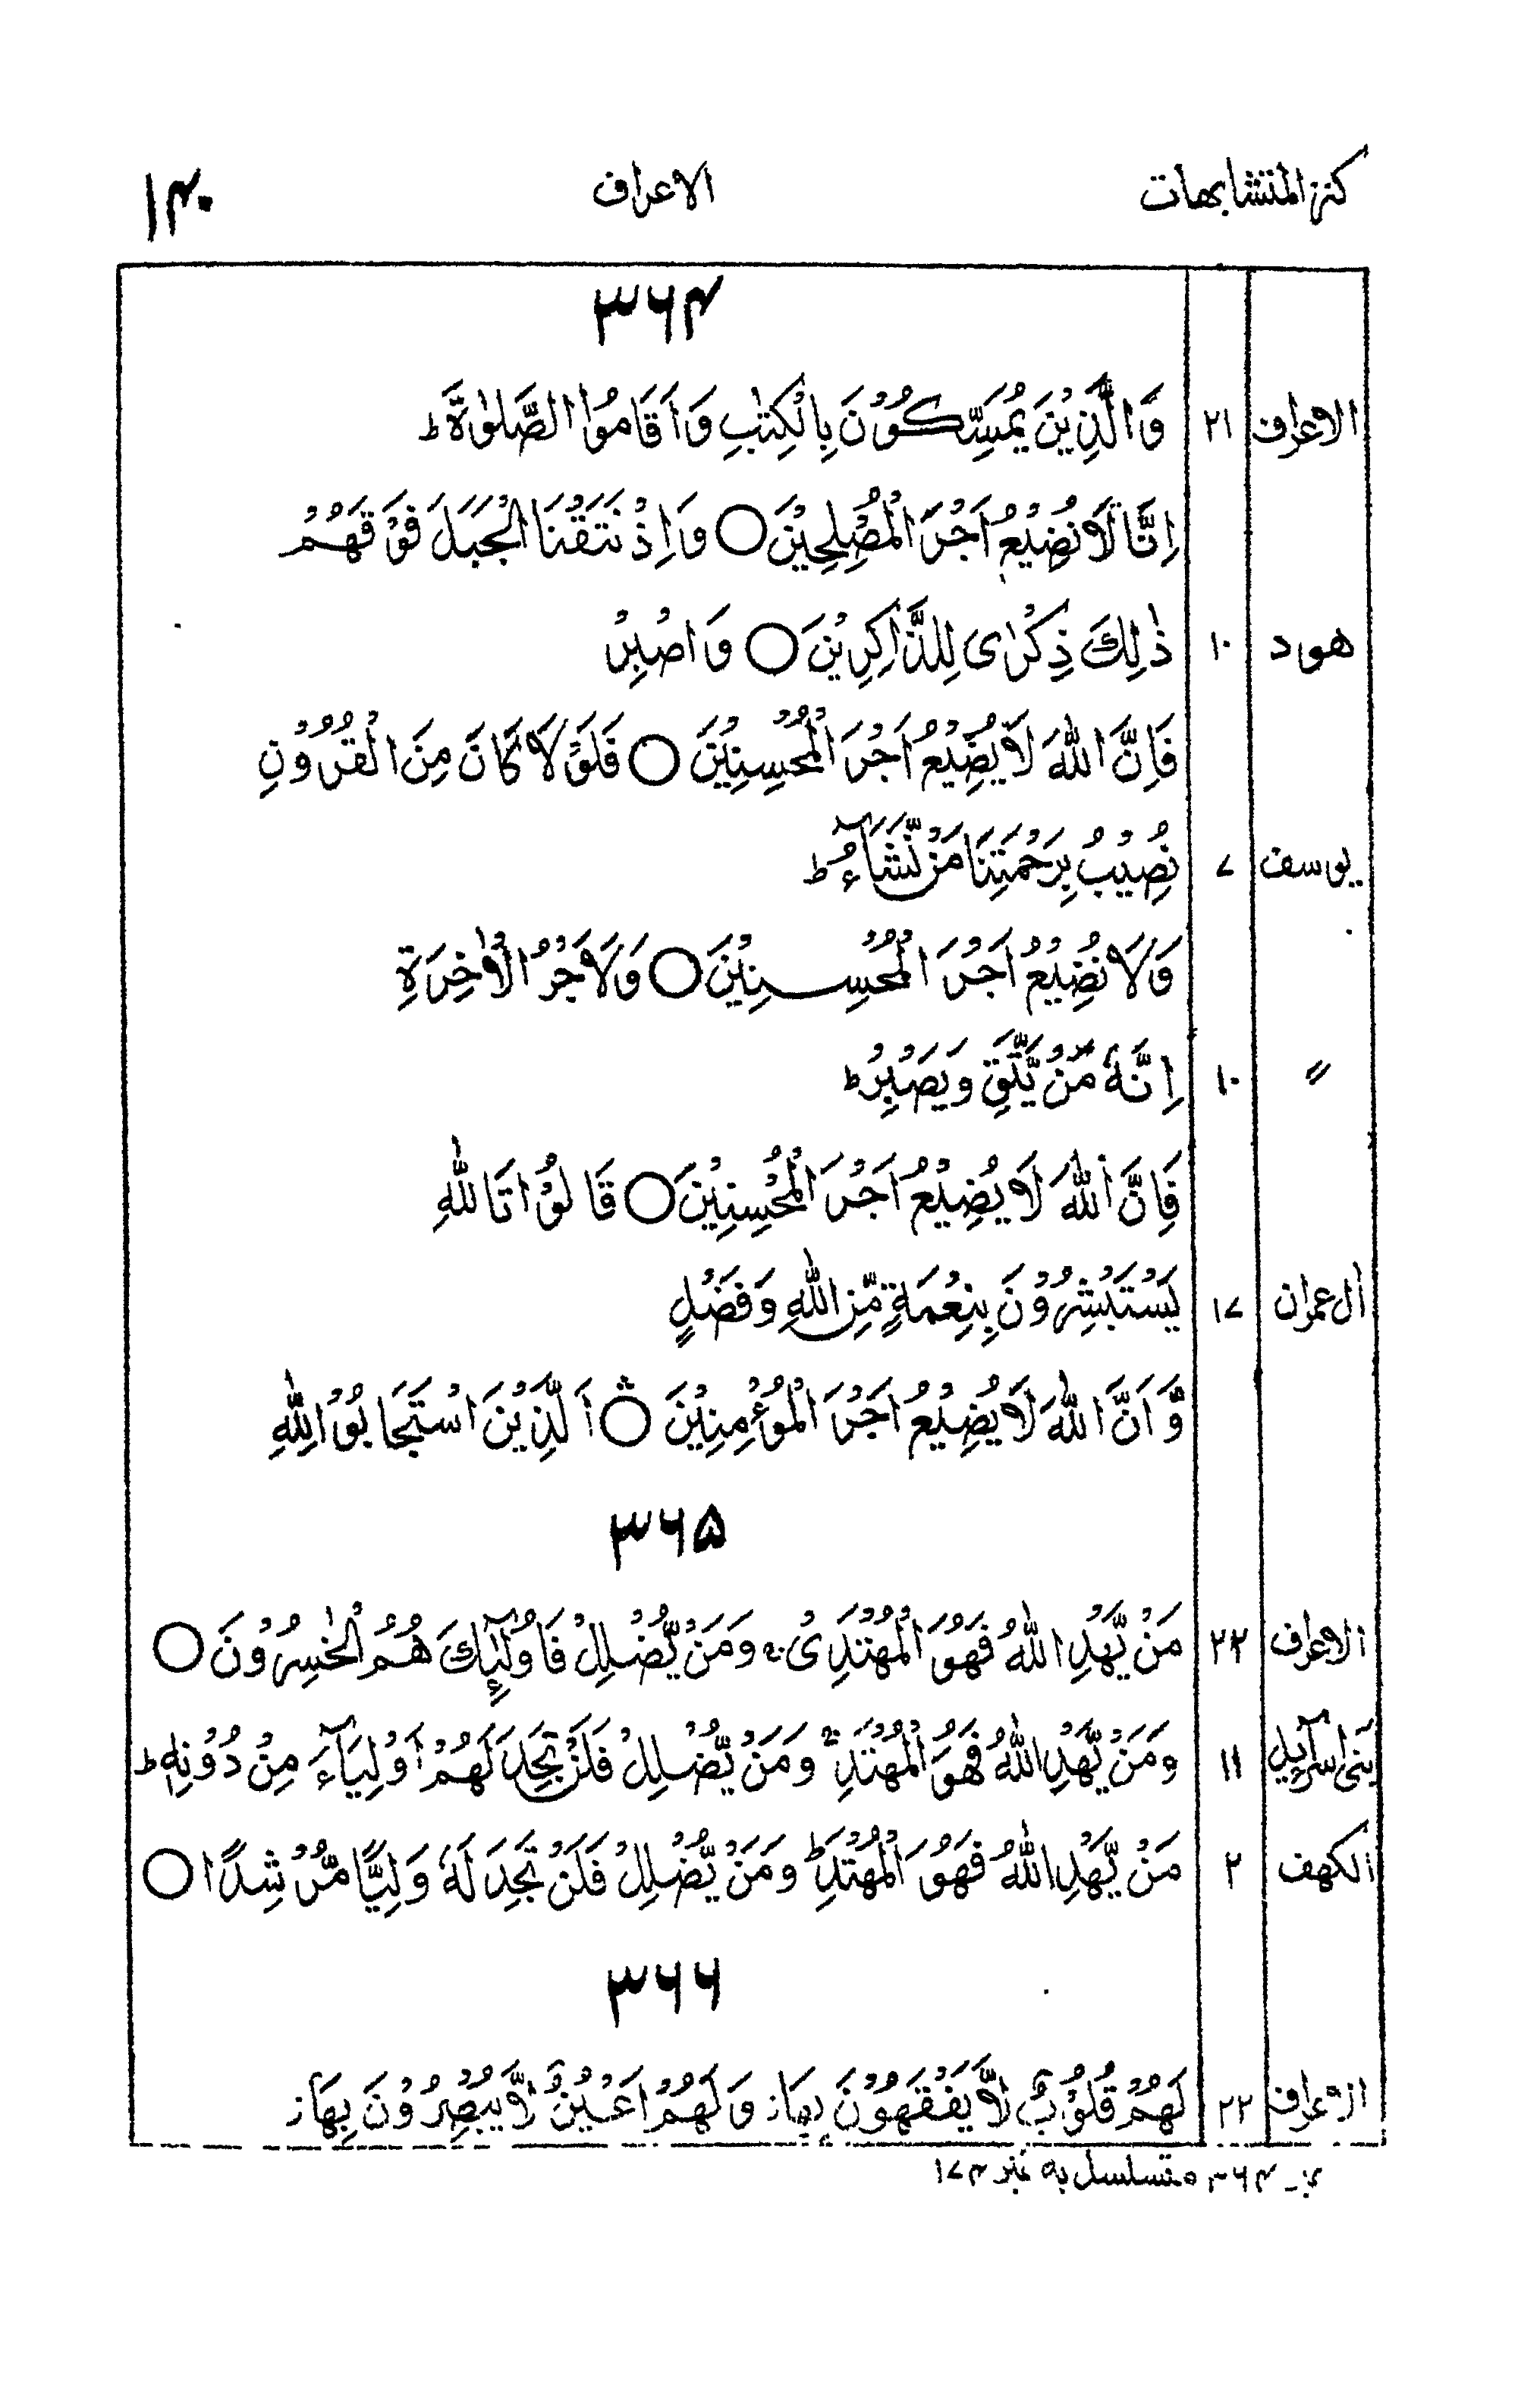 كنز المتشابهات الاعراف ۱۴۰
۳۶۴
الاعراف ۲۱ وَالَّذِيْنَ يُمَسِّكُوْنَ بِالْكِتٰبِ وَاَقَامُوا الصَّلٰوةَ ط
اِنَّا لَا نُضِيْعُ اَجْرَ الْمُصْلِحِيْنَ ○ وَاِذْ نَتَقْنَا الْجَبَلَ فَوْقَهُمْ
هود ۱۰ ذٰلِكَ ذِكْرٰى لِلذَّاكِرِيْنَ ○ وَاصْبِرْ
فَاِنَّ اللّٰهَ لَا يُضِيْعُ اَجْرَ الْمُحْسِنِيْنَ ○ فَلَوْلَا كَانَ مِنَ الْقُرُوْنِ
يوسف ۷ نُصِيْبُ بِرَحْمَتِنَا مَنْ نَّشَآءُ ط
وَلَا نُضِيْعُ اَجْرَ الْمُحْسِنِيْنَ ○ وَلَاَجْرُ الْاٰخِرَةِ
〃 ۱۰ اِنَّهٗ مَنْ يَّتَّقِ وَيَصْبِرْ ط
فَاِنَّ اللّٰهَ لَا يُضِيْعُ اَجْرَ الْمُحْسِنِيْنَ ○ قَالُوْا تَاللّٰهِ
اٰل عمران ۱۷ يَسْتَبْشِرُوْنَ بِنِعْمَةٍ مِّنَ اللّٰهِ وَفَضْلٍ
وَّاَنَّ اللّٰهَ لَا يُضِيْعُ اَجْرَ الْمُؤْمِنِيْنَ ○ اَلَّذِيْنَ اسْتَجَابُوْا لِلّٰهِ
۳۶۵
الاعراف ۲۲ مَنْ يَّهْدِ اللّٰهُ فَهُوَ الْمُهْتَدِىْ ج وَمَنْ يُّضْلِلْ فَاُولٰٓئِكَ هُمُ الْخٰسِرُوْنَ ○
بنى اسرآءيل ۱۱ وَمَنْ يَّهْدِ اللّٰهُ فَهُوَ الْمُهْتَدِ ج وَمَنْ يُّضْلِلْ فَلَنْ تَجِدَ لَهُمْ اَوْلِيَآءَ مِنْ دُوْنِهٖ ط
الكهف ۲ مَنْ يَّهْدِ اللّٰهُ فَهُوَ الْمُهْتَدِ ط وَمَنْ يُّضْلِلْ فَلَنْ تَجِدَ لَهٗ وَلِيًّا مُّرْشِدًا ○
۳۶۶
الاعراف ۲۲ لَهُمْ قُلُوْبٌ لَّا يَفْقَهُوْنَ بِهَا ز وَلَهُمْ اَعْيُنٌ لَّا يُبْصِرُوْنَ بِهَا ز
۳۶۴ متسلسل به نمبر ۱۷۴